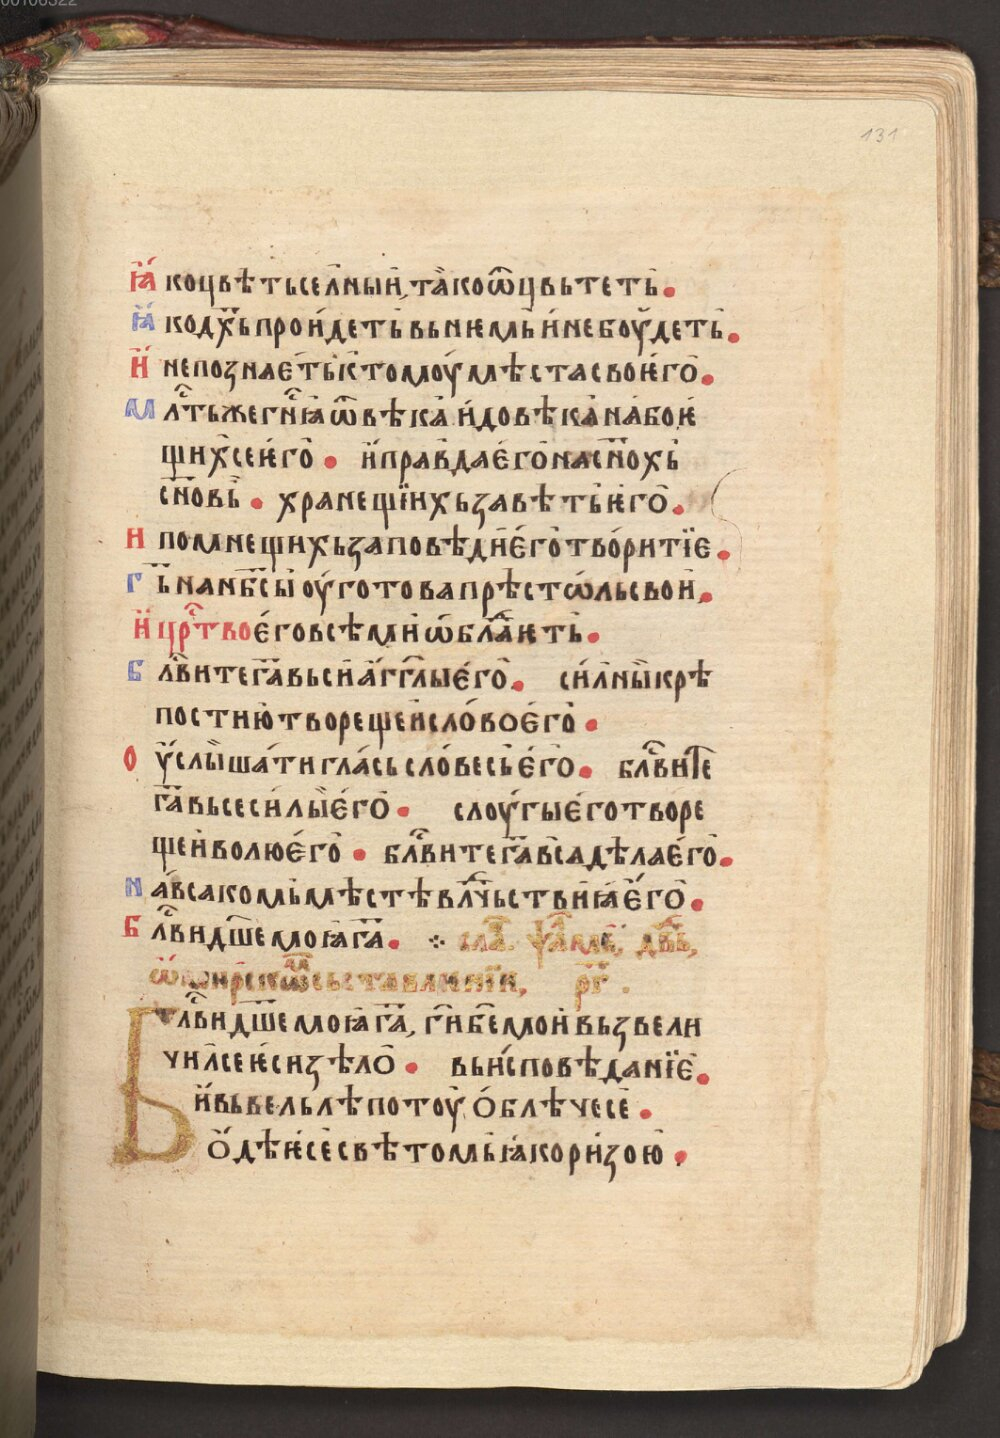 131
ꙗ҆ко цвѣть селный, та̀ко ѿцвьтеть.
ꙗ҆ко дх҃ь пройдеть вь нѥмь и не боу́деть.
И не познаѥ҆ть к томоу̀ мѣста своѥго̀.
Мл҃ть же гн҃ꙗ ѿ вѣка и до вѣка на боѥ
щихсе ѥго̀. и правда ѥ҆го на сн҃охь
сн҃овь. хранещїихь завѣть ѥго̀.
И помнещихь заповѣди ѥ҆го̀ творити їе.
Г҃ь на нб҃сы оу҆готова прѣстѡль свой.
И црⷭ҇тво ѥ҆го всѣми ѡбл҃даѥть.
Блⷭ҇вите г҃а вьси а҆гг҃лы ѥ҆го̀. силны крѣ
постию творещеи слово ѥго̀.
Оу҆слышати глась словесь ѥ҆го̀. блⷭ҇вите
г҃а вьсе силы ѥ҆го̀. слоу́гы ѥго творе
щеи волю ѥго̀. блⷭ҇вите г҃а вса дѣла ѥ҆го̀.
На всакомь мѣстѣ влⷣчьствиꙗ ѥ҆го̀.
Блⷭ҇ви дш҃е моꙗ г҃а. ѱаⷧ҇м двⷣь,
ѡ мирскѡⷨ сьставлѥнїи, р҃г.
Блⷭ҇ви дш҃е моꙗ г҃а, г҃и б҃е мои вьзвели
чилсе ѥси ѕѣло̀. вь исповѣданїѥ.
И вь вельлѣпотоу̀ о҆блѣчесе.
О҆дѣѥ се свѣтомь ꙗ҆ко ризою.